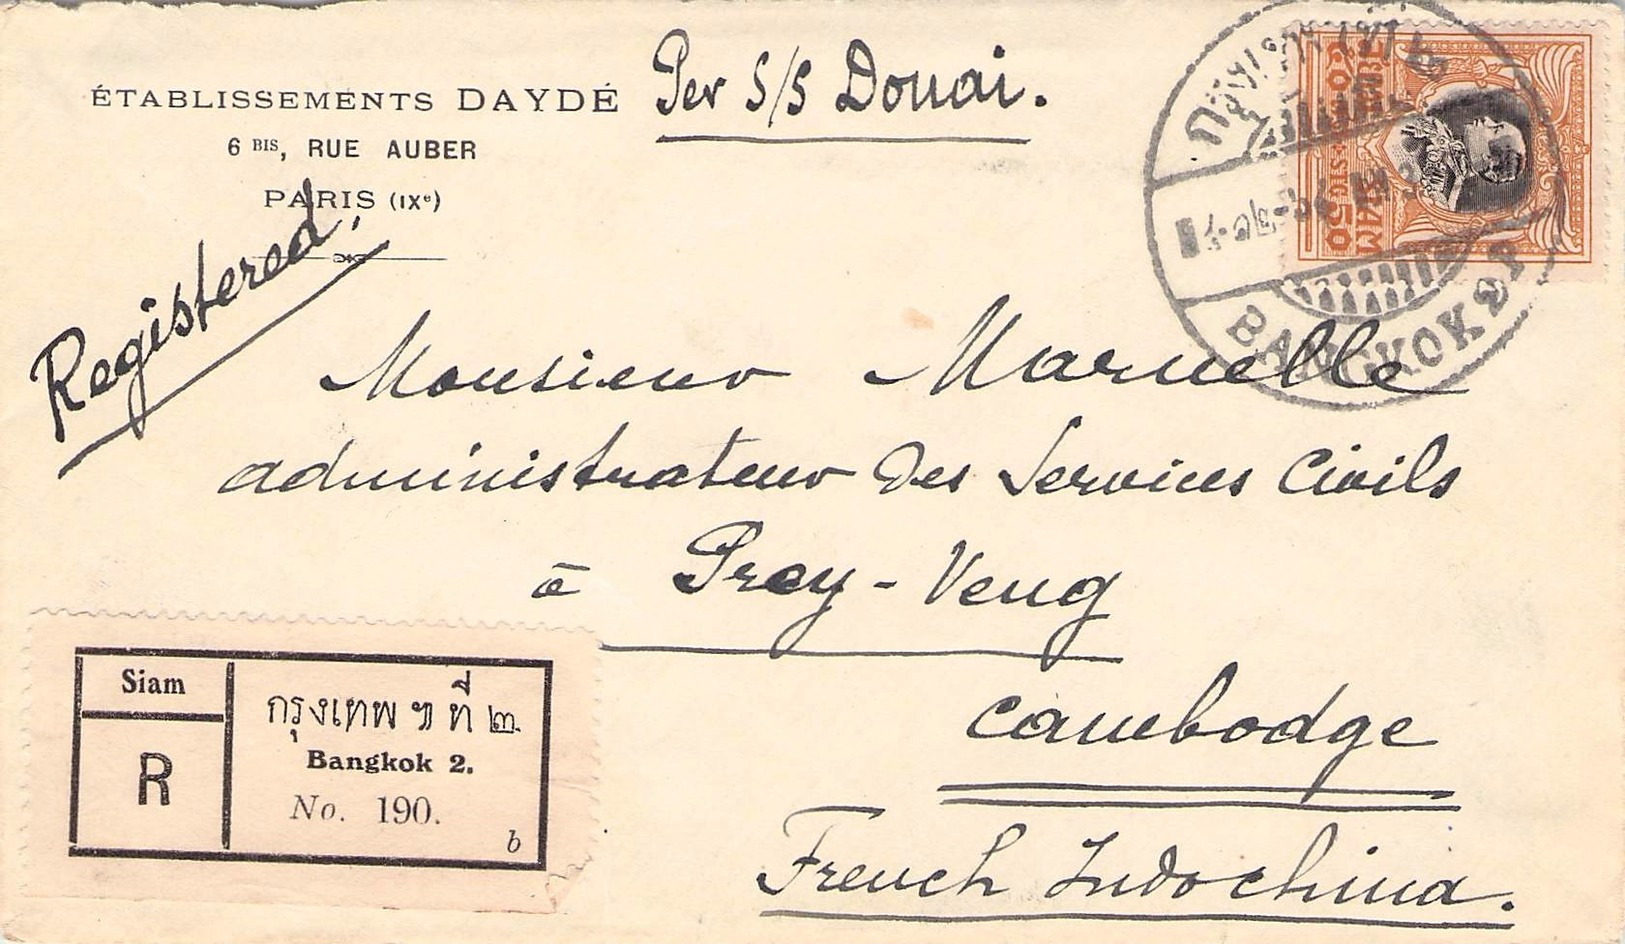 ÉTABLISSEMENTS DAYDÉ
6 BIS, RUE AUBER
PARIS (IXe)
Per S/S Douai.
Registered.
SIAM
50
BANGKOK
Monsieur Maruelle
administrateur des Services Civils
à Prey-Veng
Cambodge
French Indochina.
Siam
R
กรุงเทพ ฯ ที่ ๒.
Bangkok 2.
No. 190.
b